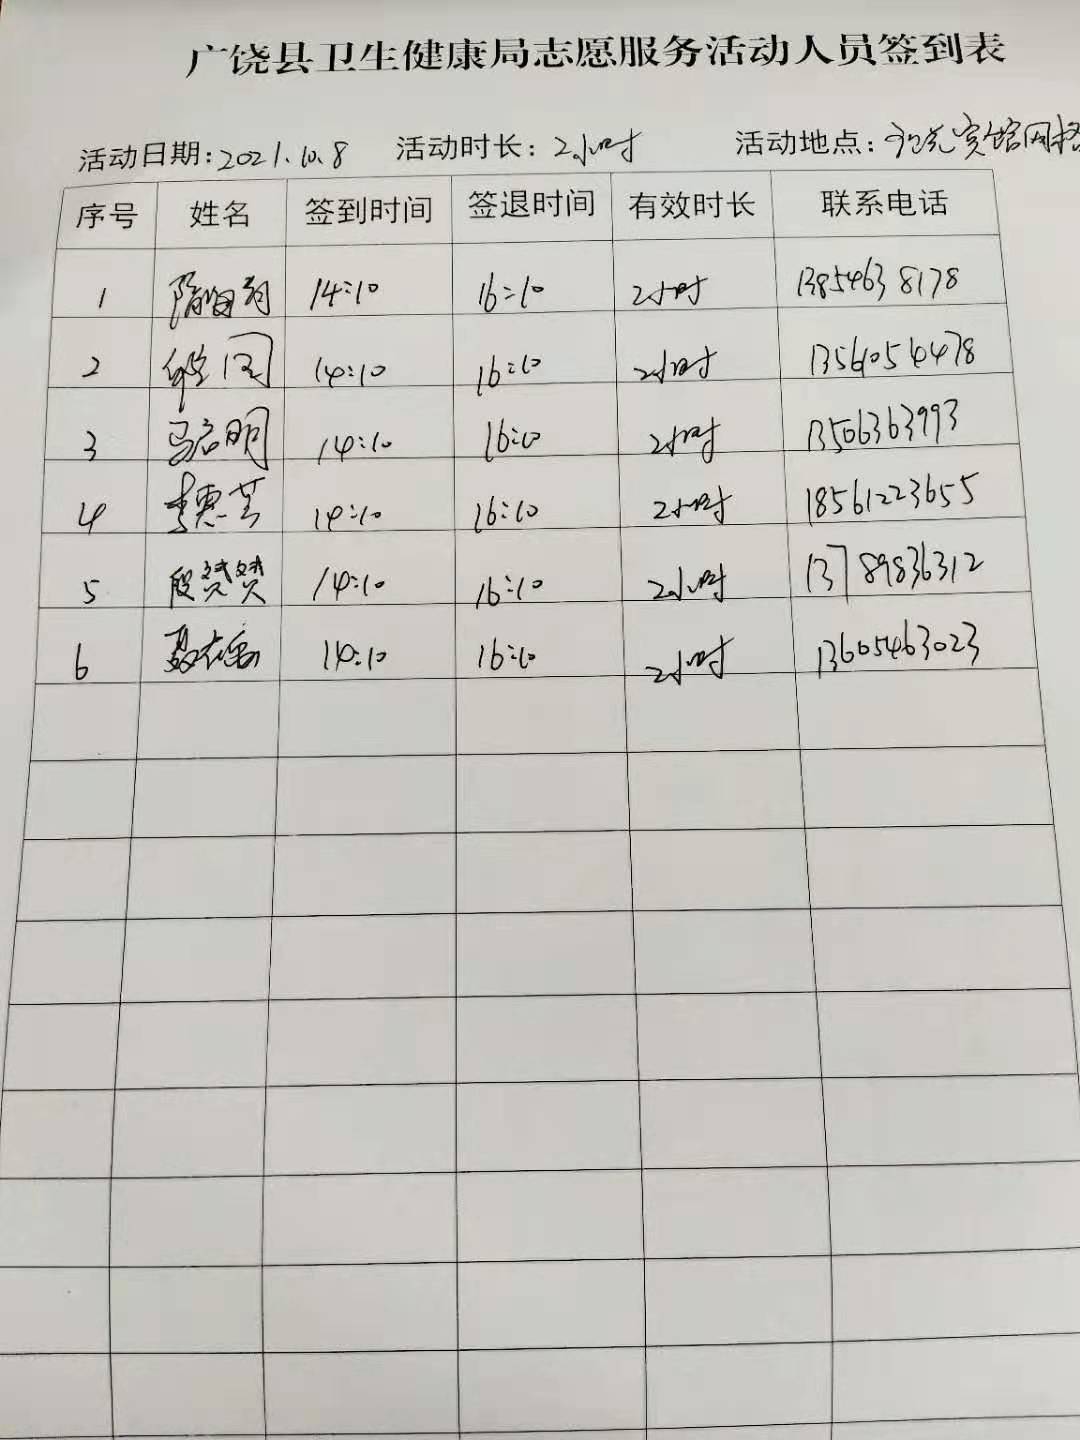 广饶县卫生健康局志愿服务活动人员签到表
活动日期:2021.10.8 活动时长:2小时 活动地点:宾馆网格
序号 姓名 签到时间 签退时间 有效时长 联系电话
1 14:10 16:10 2小时 13854638178
2 14:10 16:10 2小时 1356054478
3 马启明 14:10 16:10 2小时 13506363993
4 李惠芸 14:10 16:10 2小时 18561223655
5 殷赟赟 14:10 16:10 2小时 13789836312
6 14:10 16:10 2小时 13605463023